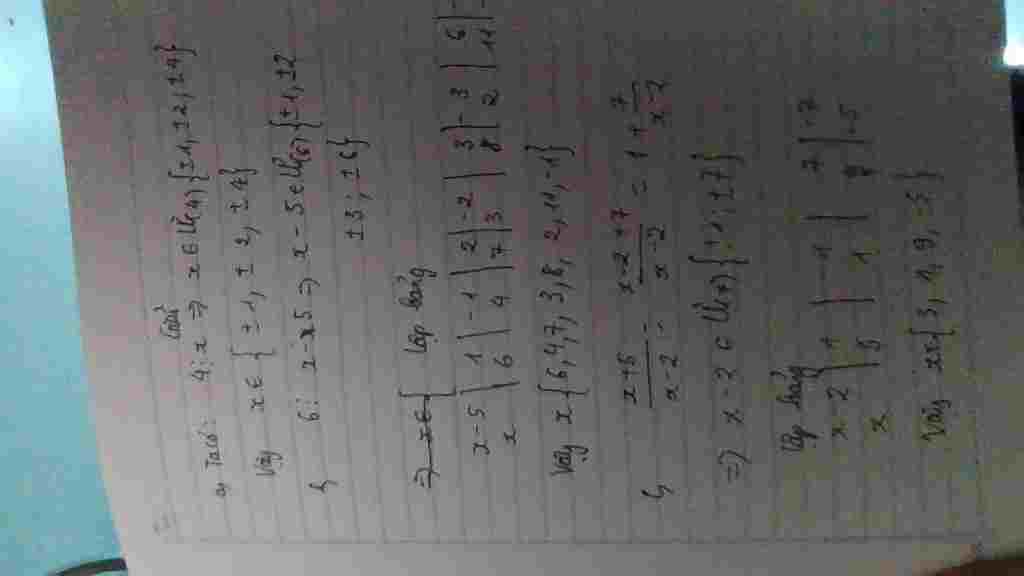 Giải
a, Ta có: 4⋮x => x ∈ Ư(4) {±1, ±2, ±4}
Vậy x ∈ {±1, ±2, ±4}
6⋮ x-5 => x-5 ∈ Ư(6) {±1, ±2
±3; ±6}
=> x ∈ { lập bảng
x-5 | 1 | -1 | 2 | -2 | 3 | -3 | 6 | -
x | 6 | 4 | 7 | 3 | 8 | 2 | 11 | -
Vậy x {6, 4, 7, 3, 8, 2, 11, -1}
x+5 / x-2 = x-2+7 / x-2 = 1 + 7 / x-2
=> x-2 ∈ Ư(7) {±1; ±7}
Lập bảng
x-2 | 1 | -1 | 7 | -7
x | 3 | 1 | 9 | -5
Vậy x ∈ {3, 1, 9, -5}